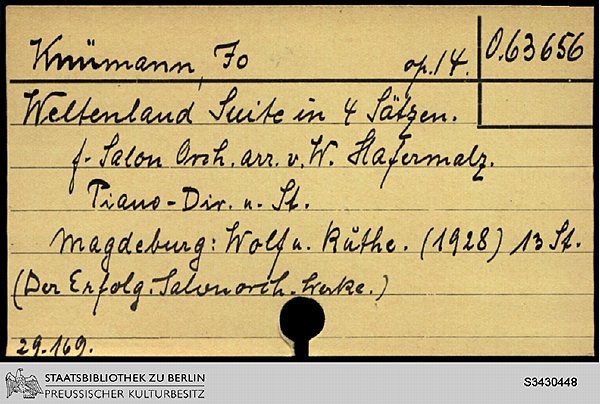 Knümann, Jo op. 14. O.63656
Weltenland Suite in 4 Sätzen.
f. Salon Orch. arr. v. W. Hafermalz.
Piano-Dir. u. St.
Magdeburg: Wolf u. Käthe. (1928) 13 St.
(Der Erfolg. Salonorch. Werke.)
29.169.
STAATSBIBLIOTHEK ZU BERLIN
PREUSSISCHER KULTURBESITZ
S3430448